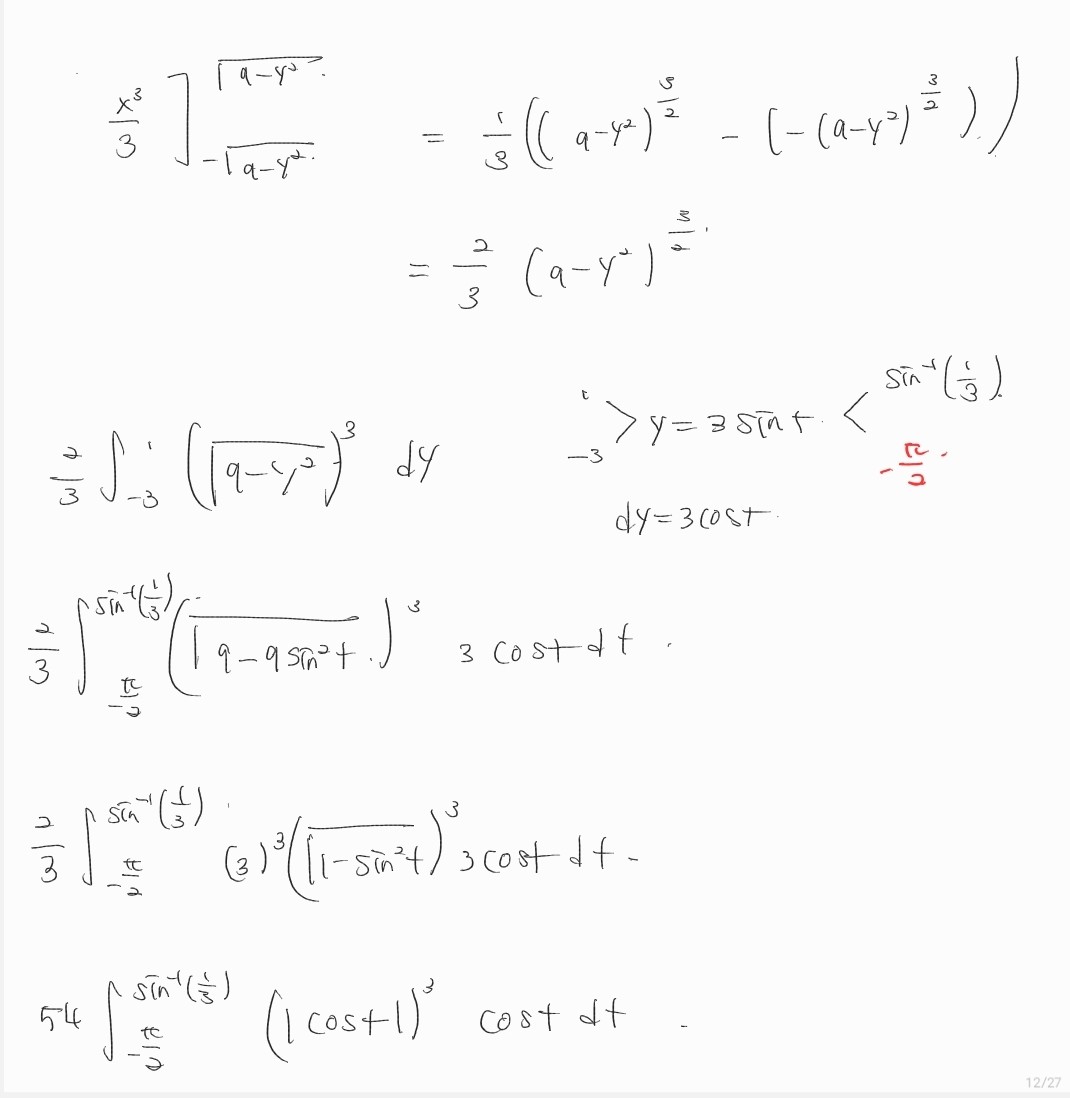 x³/3 ]_{-√(9-y²)}^{√(9-y²)} = 1/3 ((9-y²)^{3/2} - (-(9-y²)^{3/2}))
= 2/3 (9-y²)^{3/2}
2/3 ∫_{-3}^{1} (√(9-y²))³ dy
1
-3 > y = 3 sin t < sin⁻¹(1/3)
-π/2
dy = 3cost
2/3 ∫_{-π/2}^{sin⁻¹(1/3)} (√(9-9sin²t))³ 3 cost dt
2/3 ∫_{-π/2}^{sin⁻¹(1/3)} (3)³(√(1-sin²t))³ 3 cost dt
54 ∫_{-π/2}^{sin⁻¹(1/3)} (|cost|)³ cost dt
12/27